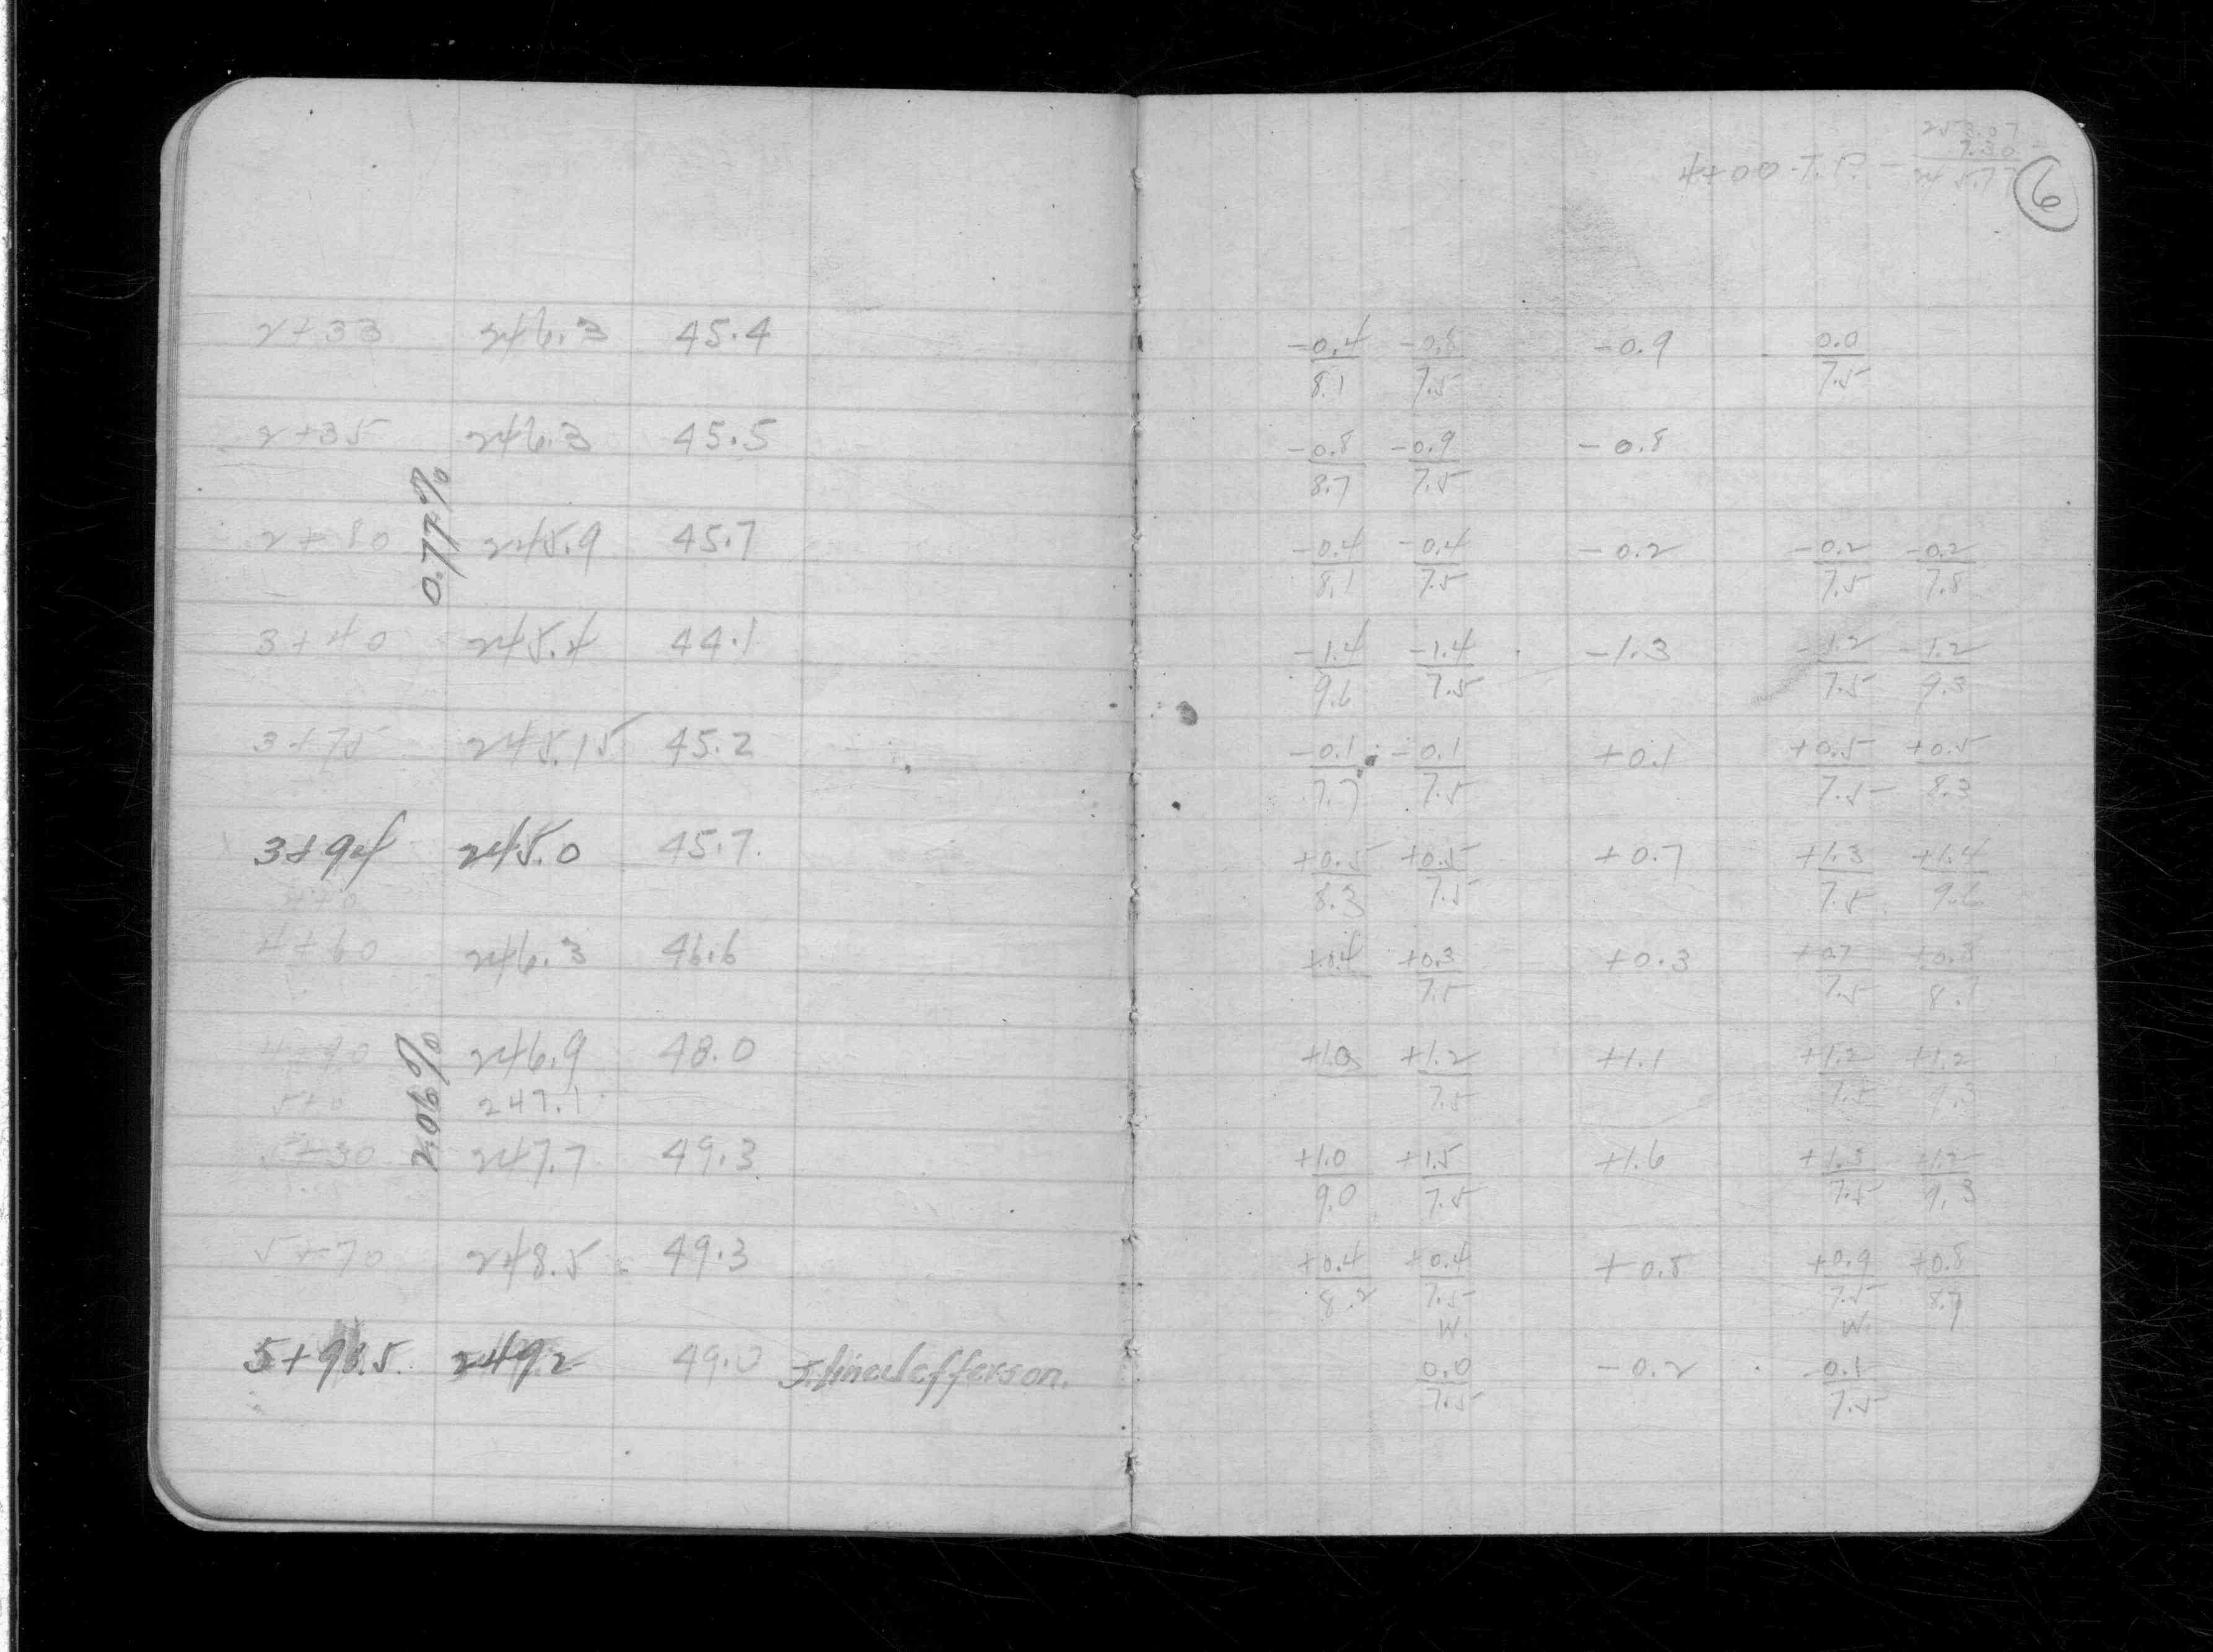 2+33 246.3 45.4
2+35 246.3 45.5
0.77%
2+80 245.9 45.7
3+40 245.4 44.1
3+75 245.15 45.2
3+94 245.0 45.7
4+0
4+60 246.3 46.6
4+90 246.9 48.0
2.06%
5+0 247.1
5+30 247.7 49.3
5+70 248.5 49.3
5+98.5 249.2 49.0 Jefferson.
253.07
7.30
4+00 T.P. - 245.77
6
-0.4 -0.8 -0.9 0.0
8.1 7.5 7.5
-0.8 -0.9 -0.8
8.7 7.5
-0.4 -0.4 -0.2 -0.2 -0.2
8.1 7.5 7.5 7.8
-1.4 -1.4 -1.3 -1.2 -1.2
9.6 7.5 7.5 9.3
-0.1 -0.1 +0.1 +0.5 +0.5
7.7 7.5 7.5 8.3
+0.5 +0.5 +0.7 +1.3 +1.4
8.3 7.5 7.5 9.6
+0.4 +0.3 +0.3 +0.7 +0.8
7.5 7.5
+1.2 +1.1 +1.2 +1.2
7.5 7.5 9.3
+1.0 +1.5 +1.6 +1.3 +1.2
9.0 7.5 7.5 9.3
+0.4 +0.4 +0.8 +0.9 +0.8
8.2 7.5 7.5 8.7
W. W.
0.0 -0.2 0.1
7.5 7.5